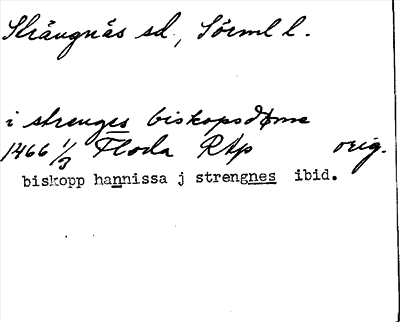 Strängnäs sd, Sörml l.
i strenges biskopsdøme
1466 1/3 Floda RAp orig.
biskopp hannissa j strengnes ibid.